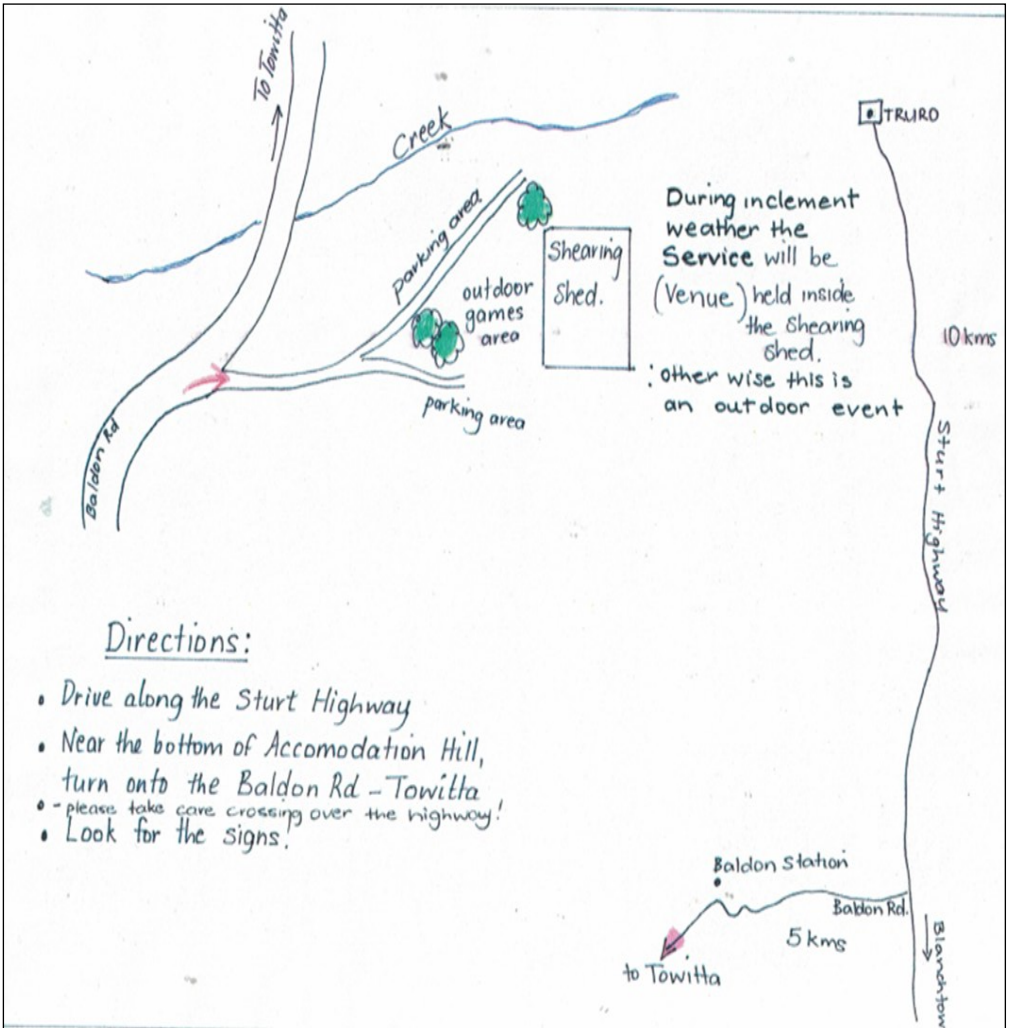 To Towitta
Creek
TRURO
parking area
Shearing
Shed.
outdoor
games
area
During inclement
weather the
Service will be
(Venue) held inside
the Shearing
shed.
: other wise this is
an outdoor event
10 kms
parking area
Baldon Rd
Sturt Highway
Directions:
• Drive along the Sturt Highway
• Near the bottom of Accomodation Hill,
turn onto the Baldon Rd - Towitta
• - please take care crossing over the highway!
• Look for the signs!
Baldon Station
Baldon Rd.
5 kms
to Towitta
Blanchtow